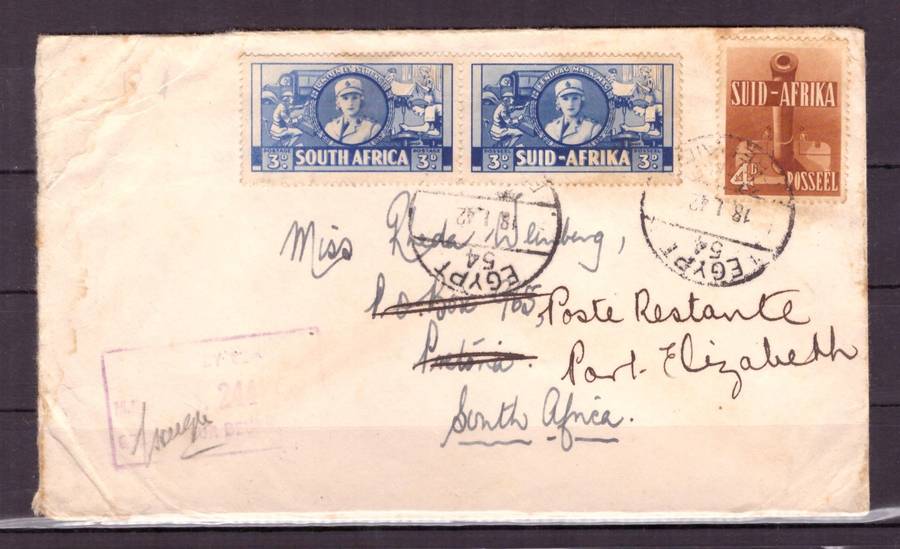 SOUTH AFRICA
3D 3D
SUID-AFRIKA
3D 3D
SUID-AFRIKA
4D POSSEEL
EGYPT
54
18.1.42
EGYPT
54
18.1.42
Miss Rheda Weinberg,
P.O. Box 705, Poste Restante
Pretoria. Port-Elizabeth
South Africa.
241